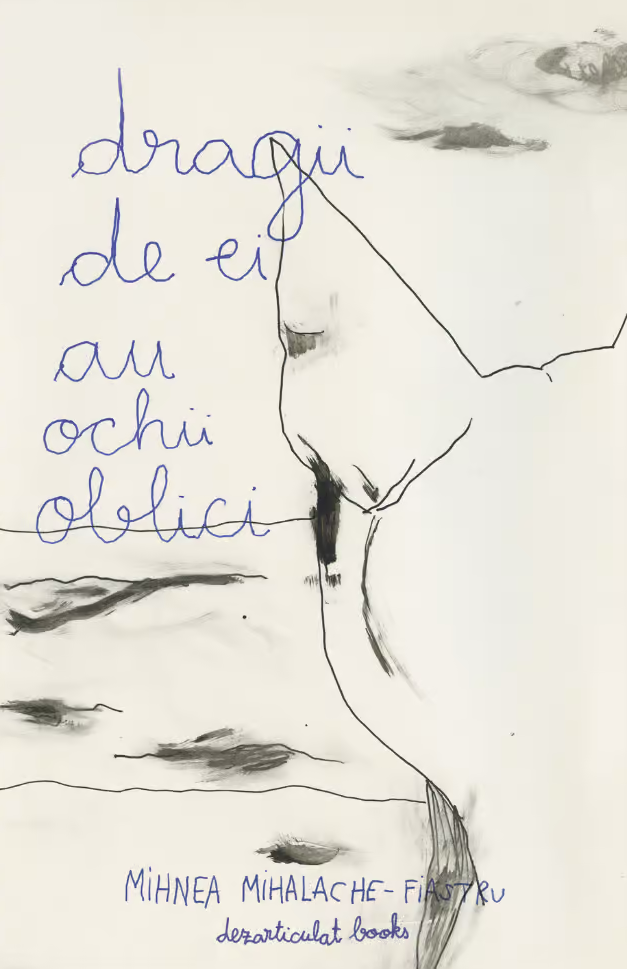 dragii
de ei
au
ochii
oblici
MiHNEA MiHALACHE-FiASTRU
dezarticulat books